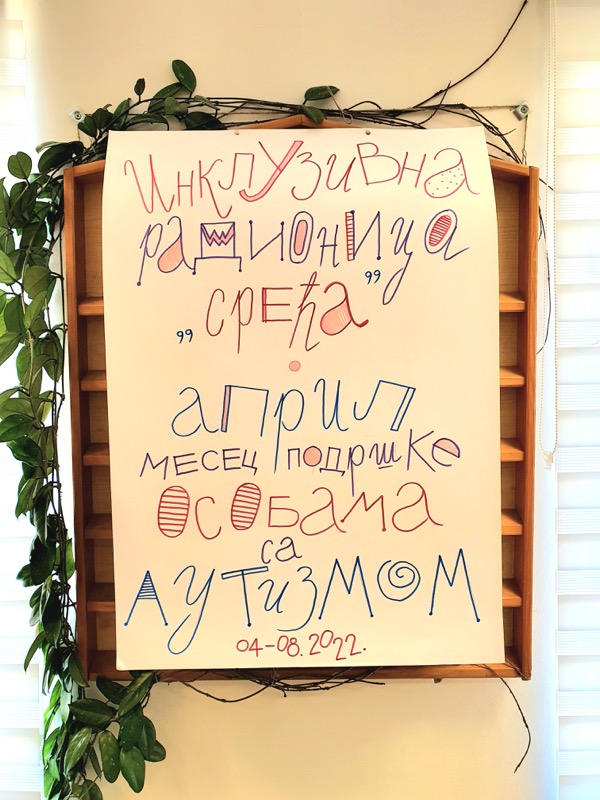 Инклузивна
радионица
„срећа”
април
месец подршке
особама
са
аутизмом
04-08.2022.